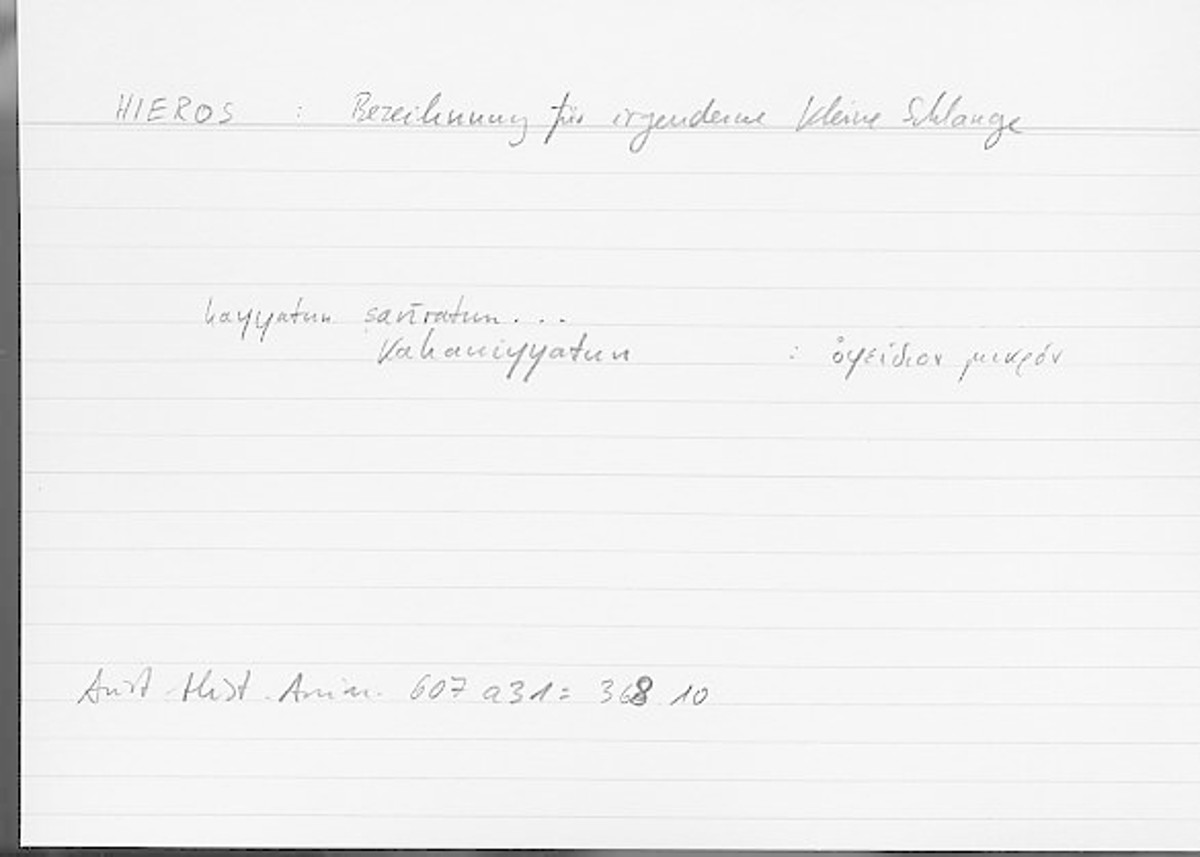 HIEROS : Bezeichnung für irgendeine kleine Schlange
hayyatun saġīratun...
Kahaniyyatun : ὀφείδιον μικρόν
Arist Hist. Anim. 607 a31 = 368 10